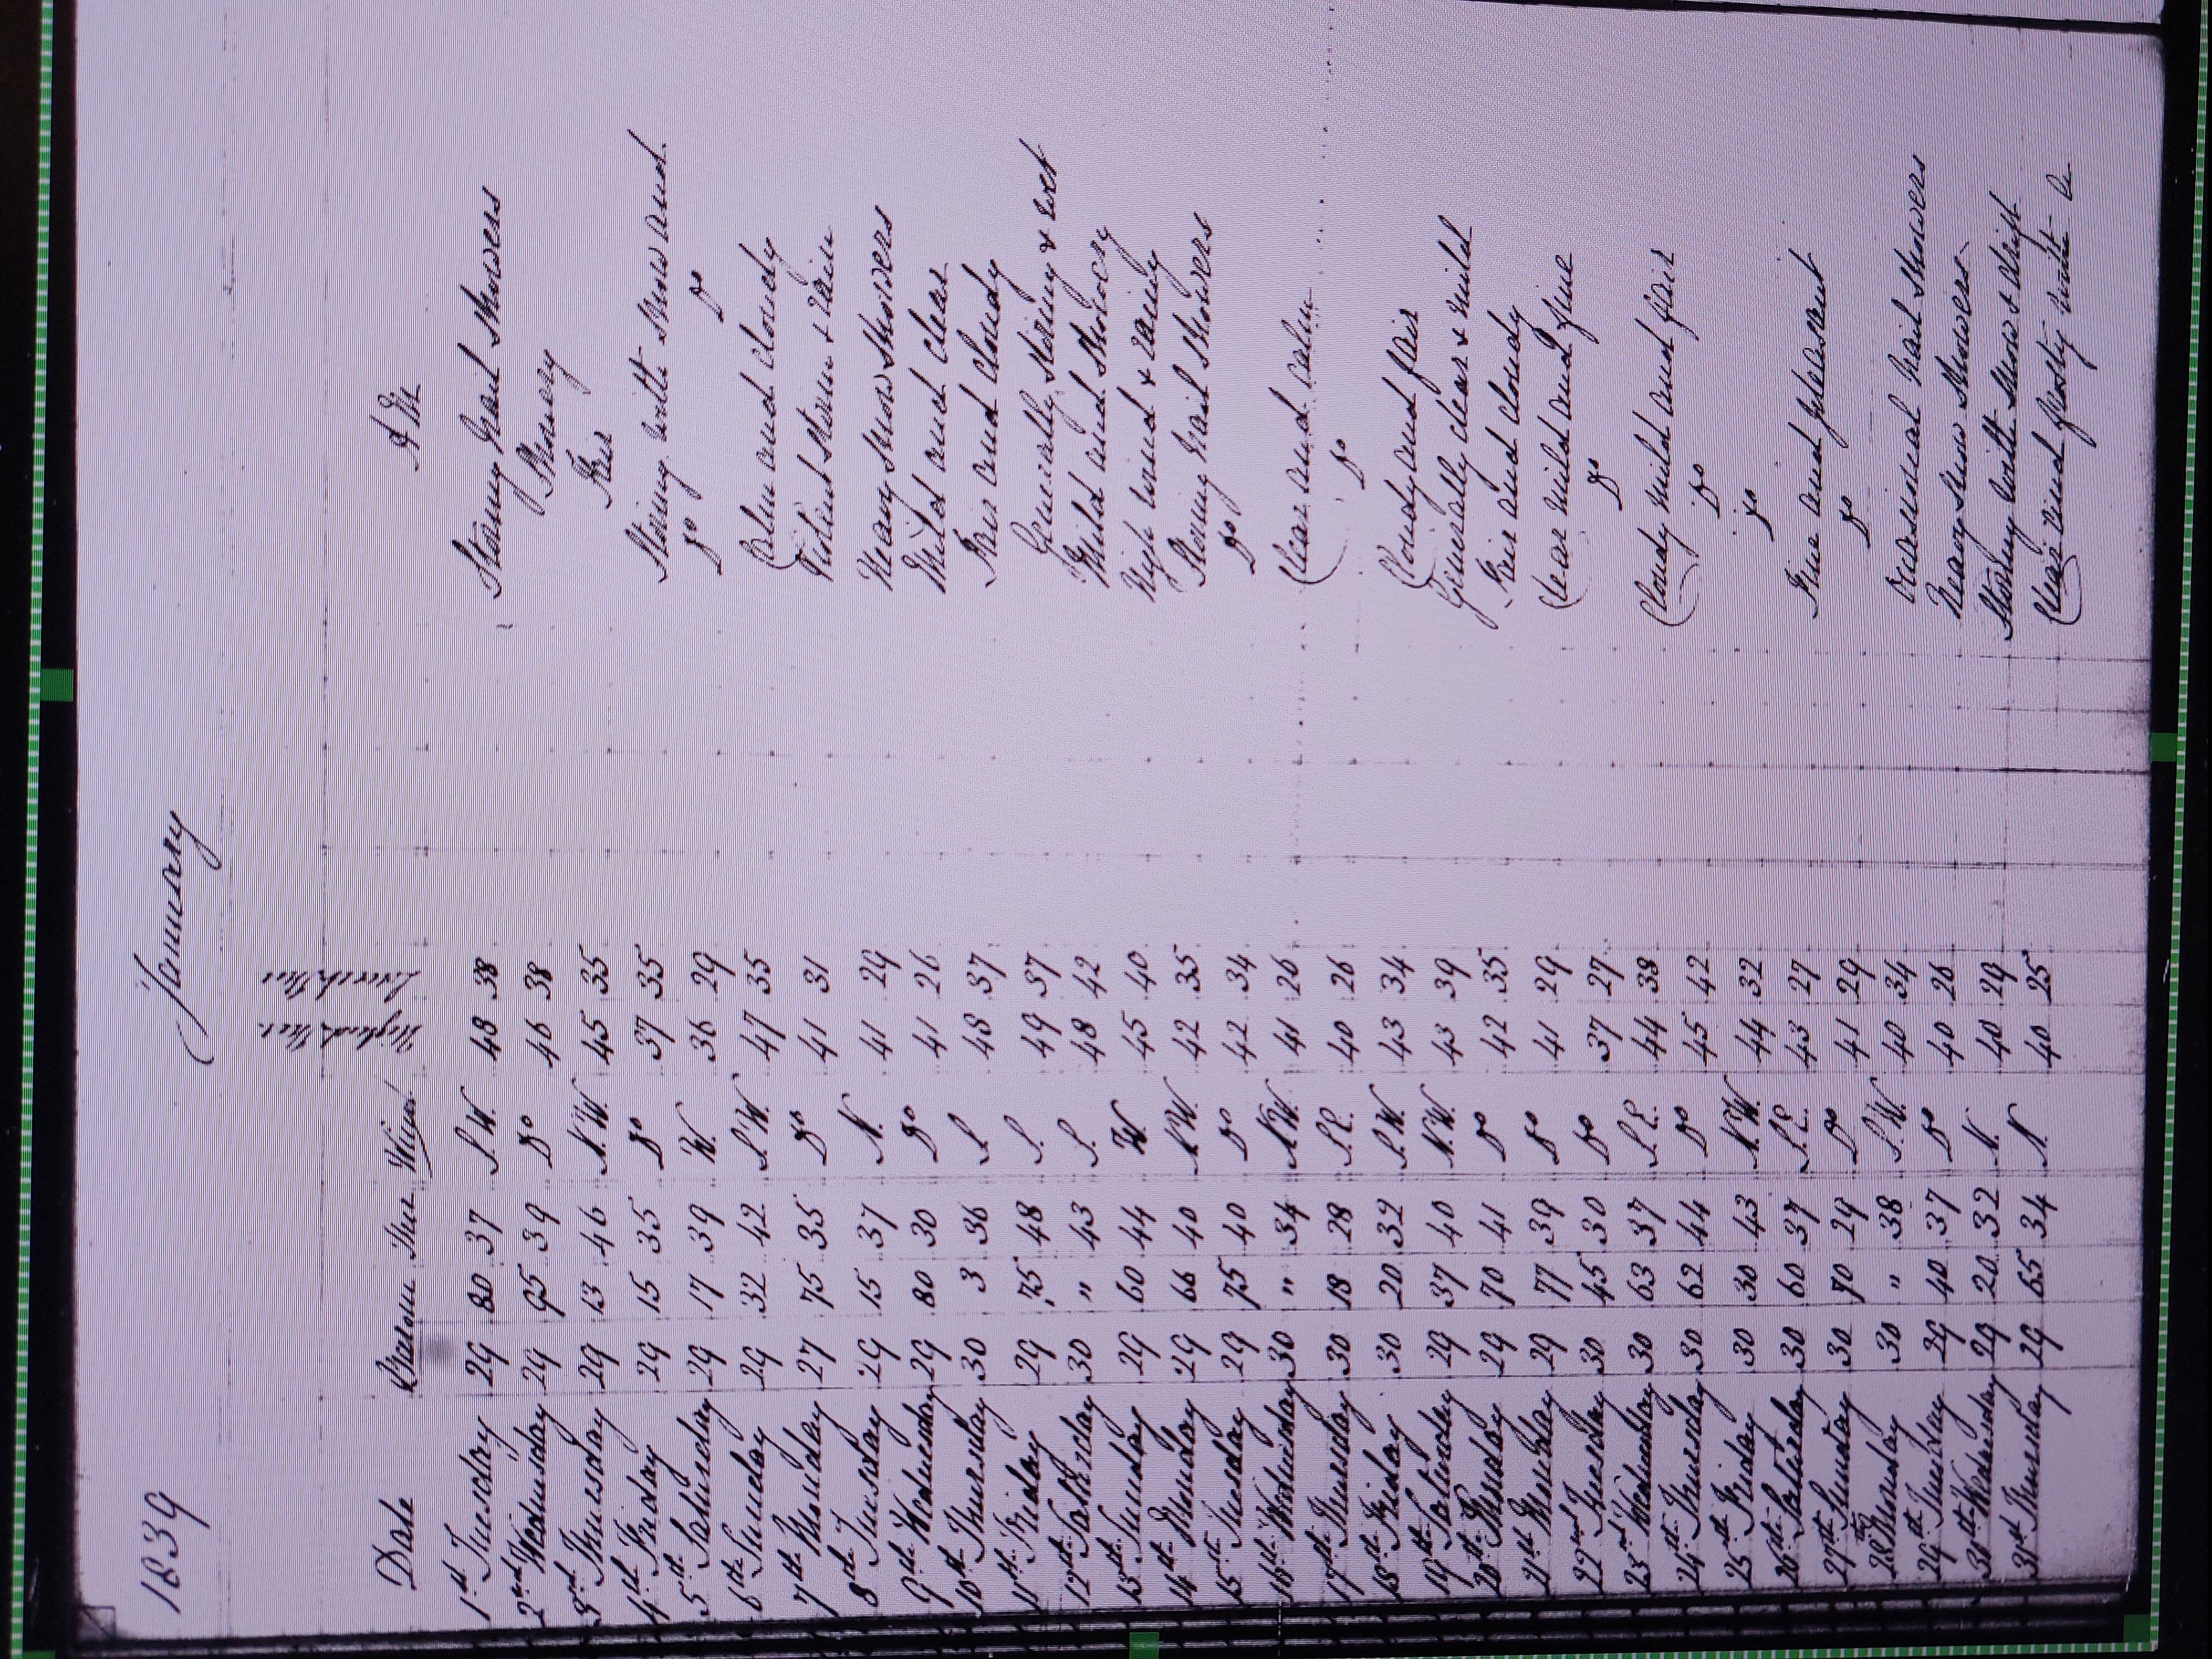 1839 January
Highest Ther. Lowest Ther
Date Barom Ther Wind A M
1st Tuesday 29 80 37 S.W. 48 38 Stormy hail showers
2nd Wednesday 29 95 39 Do 46 38 Showery
3rd Thursday 29 13 46 N.W. 45 35 Fair
4th Friday 29 15 35 Do 37 35 Stormy with snow and
5th Saturday 29 17 39 W. 36 29 Do Do
6th Sunday 29 32 42 S.W. 47 35 Calm and cloudy
7th Monday 27 75 35 Do 41 31 Violent storm & rain
8th Tuesday 29 15 37 N. 41 29 Heavy snow showers
9th Wednesday 29 80 30 Do 41 26 Mild and clear
10th Thursday 30 3 36 S 48 37 Fair and cloudy
11th Friday 29 75 48 S. 49 37 Generally stormy & wet
12th Saturday 30 " 43 S. 48 42 Mild and showery
13th Sunday 29 60 44 W. 45 40 High wind & rainy
14th Monday 29 66 40 N.W. 42 35 Stormy hail showers
15th Tuesday 29 75 40 Do 42 34 Do
16th Wednesday 30 " 34 N.W. 41 26 Clear and calm
17th Thursday 30 18 28 S.E. 40 26 Do
18th Friday 30 20 32 S.W. 43 34 Cloudy and fair
19th Saturday 29 37 40 N.W. 43 39 Generally clear & mild
20th Sunday 29 70 41 Do 42 35 Fair and cloudy
21st Monday 29 77 39 Do 41 29 Clear mild and fine
22nd Tuesday 30 45 30 Do 37 27 Do
23rd Wednesday 30 63 37 S.E. 44 38 Cloudy mild and fair
24th Thursday 30 62 44 Do 45 42 Do
25th Friday 30 30 43 N.W. 44 32 Do
26th Saturday 30 60 37 S.E. 43 27 Fine and pleasant
27th Sunday 30 70 29 Do 41 29 Do
28th Monday 30 " 38 S.W. 40 34 Occasional hail showers
29th Tuesday 29 40 37 Do 40 26 Heavy snow showers
30th Wednesday 29 20 32 N. 40 29 Stormy with snow & drift
31st Thursday 29 65 34 N. 40 25 Clear and frosty with